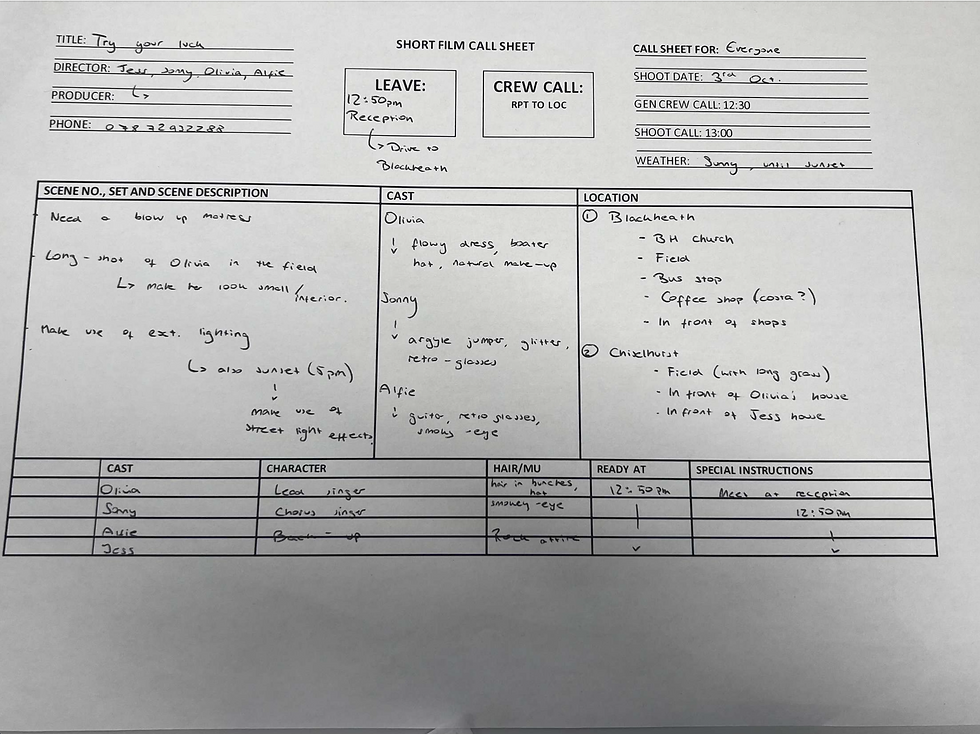 TITLE: Try your luck
DIRECTOR: Jess, Sonny, Olivia, Alfie
PRODUCER:
PHONE:
SHORT FILM CALL SHEET
LEAVE:
12:50pm
Reception
↳ Drive to
Blackheath
CREW CALL:
RPT TO LOC
CALL SHEET FOR: Everyone
SHOOT DATE: 3rd Oct.
GEN CREW CALL: 12:30
SHOOT CALL: 13:00
WEATHER: Sunny, until sunset
SCENE NO., SET AND SCENE DESCRIPTION
- Need a blow up matress
- Long-shot of Olivia in the field
↳ make her look small/inferior.
- Make use of ext. lighting
↳ also sunset (5pm)
make use of
street light effects
CAST
Olivia
flowy dress, boater
hat, natural make-up
Sonny
argyle jumper, glitter,
retro-glasses
Alfie
guitar, retro glasses,
smoky-eye
LOCATION
① Blackheath
- BH church
- Field
- Bus stop
- Coffee shop (costa?)
- In front of shops
② Chiselhurst
- Field (with long grass)
- In front of Olivia's house
- In front of Jess house
CAST CHARACTER HAIR/MU READY AT SPECIAL INSTRUCTIONS
Olivia Lead singer hair in bunches, hat 12:50pm Meet at reception
Sonny Chorus singer smokey-eye 12:50pm
Alfie Back-up Rock attire
Jess